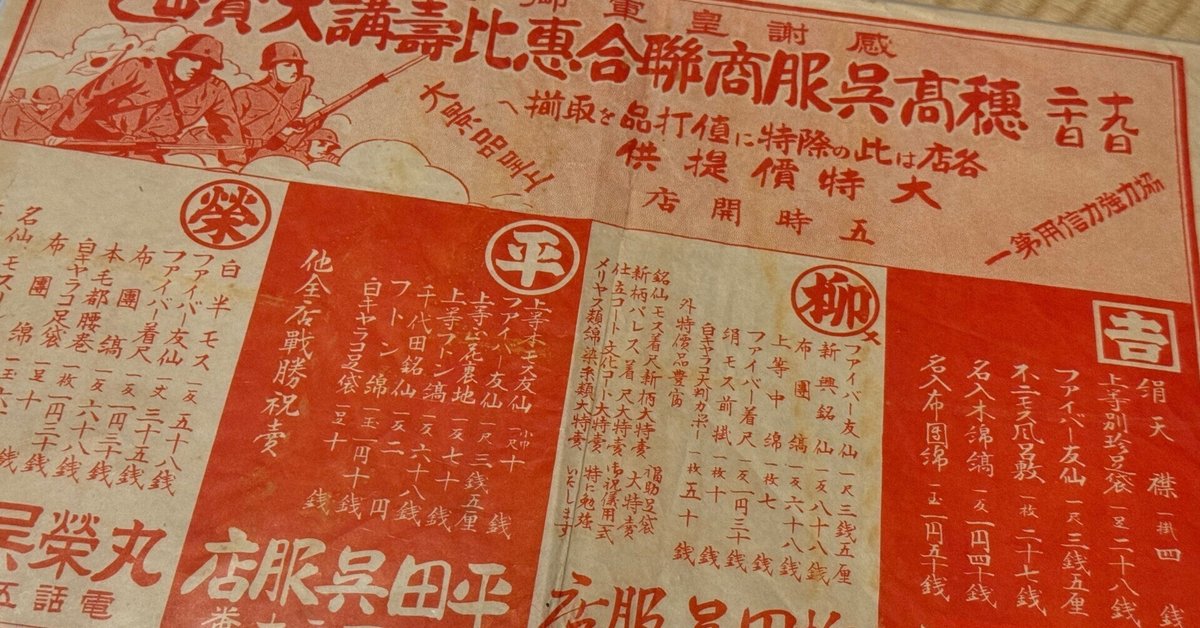 感謝皇軍
十九日
二十日
穂高呉服商聯合恵比壽講大賣出
各店は此の際特に値打品を取揃へ
大特價提供
五時開店
大景品呈上
協力強力信用第一
吉
絹天襟 一掛 四銭
上等別珍足袋 一足 二十八銭
ファイバー友仙 一尺 三銭五厘
不二モス風呂敷 一枚 二十七銭
名入木綿縞 一反 一円四十銭
名入布団綿 一玉 一円五十銭
柳
ファイバー友仙 一尺 三銭五厘
新興銘仙 一反 八十八銭
布團縞 一反 六十八銭
上等中綿 一枚 七銭
ファイバー着尺 一反 一円三十銭
絹モス前掛 一枚 十銭
白キャラコ大判カポー 一枚 五十銭
外特価品豊富
銘仙モス着尺新柄大特賣
新柄パレス着尺大特賣
仕立コート文化コート大特賣
メリヤス類綿染糸類大特賣
福助足袋大特賣
御祝儀用一式
特に勉強いたします
呉服店
平
上等本モス友仙 小巾一尺 十銭
ファイバー友仙 一尺 三銭五厘
上等花裏地 一反 七十銭
上等フトン縞 一反 六十八銭
千代田銘仙 一反 二円
フトン綿 一玉 一円十銭
白キャラコ足袋 一足 十銭
他全店戰勝祝賣
平田呉服店
榮
白半モス 一反 五十八銭
ファイバー友仙 一丈 三十五銭
ファイバー着尺 一反 一円三十銭
布團縞 一反 六十八銭
本毛都腰巻 一枚 一円二十銭
白キャラコ足袋 一足 十銭
布團綿 一玉
名仙
丸榮呉
電話五